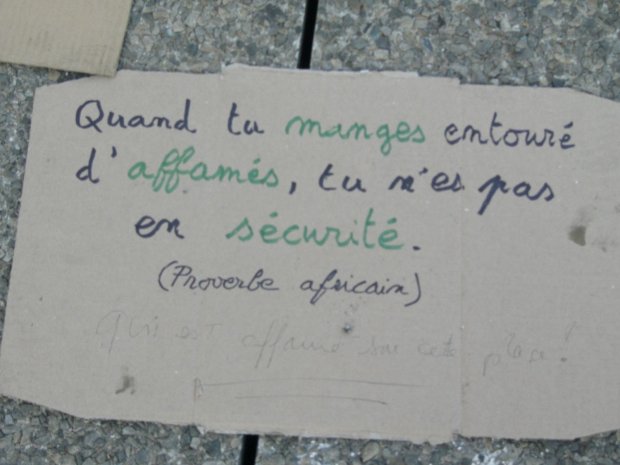 Quand tu manges entouré
d'affamés, tu n'es pas
en sécurité.
(Proverbe africain)
qui est affamé sur cette place!